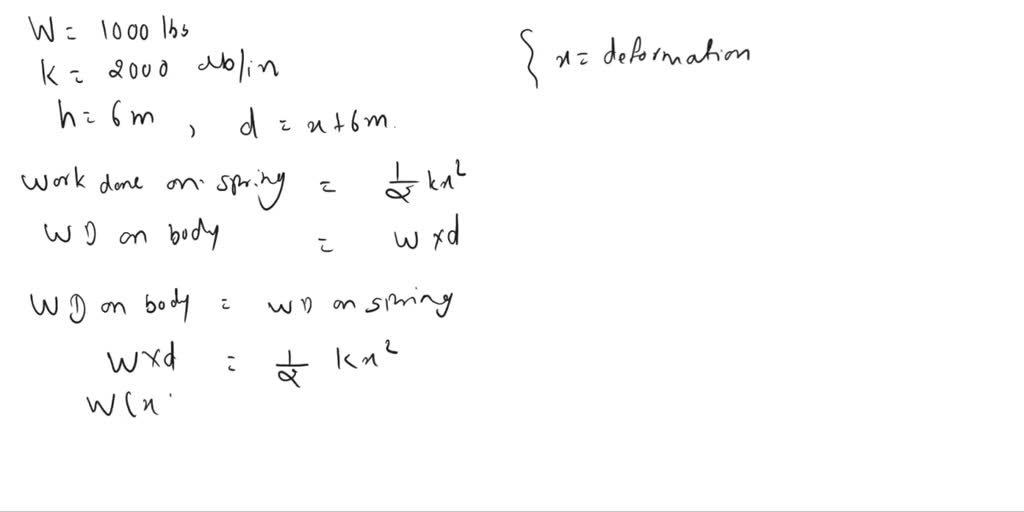 W = 1000 lbs
K = 2000 lb/in
h = 6m , d = x + 6m.
{ x = deformation
work done on spring = 1/2 kx²
WD on body = W × d
WD on body = WD on spring
W × d = 1/2 Kx²
W(x